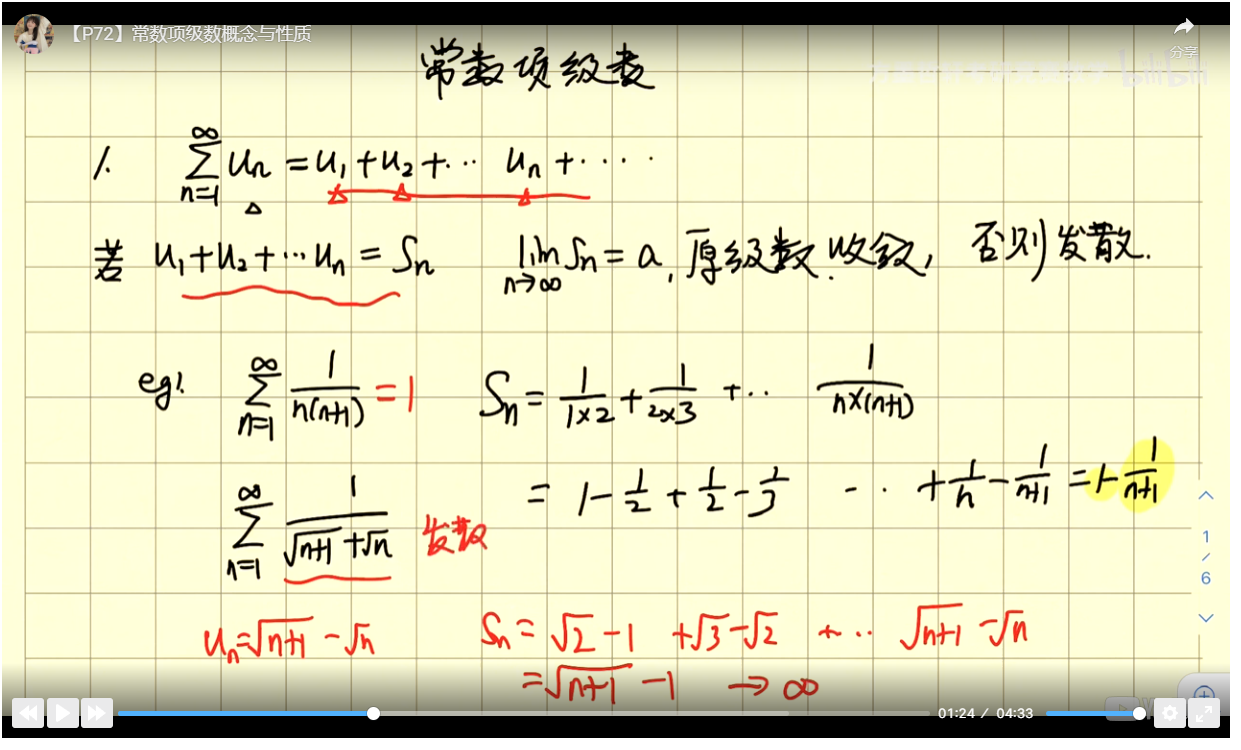 【P72】常数项级数概念与性质
分享
bilibili
常数项级数
1. ∑_{n=1}^{∞} u_n = u_1 + u_2 + ⋯ u_n + ⋯⋯
若 u_1 + u_2 + ⋯ u_n = S_n lim_{n→∞} S_n = a, 原级数收敛, 否则发散.
eg1. ∑_{n=1}^{∞} 1/(n(n+1)) = 1 S_n = 1/(1×2) + 1/(2×3) + ⋯ 1/(n×(n+1))
= 1 - 1/2 + 1/2 - 1/3 ⋯ + 1/n - 1/(n+1) = 1 - 1/(n+1)
∑_{n=1}^{∞} 1/(√(n+1) + √n) 发散
u_n = √(n+1) - √n S_n = √2 - 1 + √3 - √2 + ⋯ √(n+1) - √n
= √(n+1) - 1 → ∞
1
/
6
01:24 / 04:33